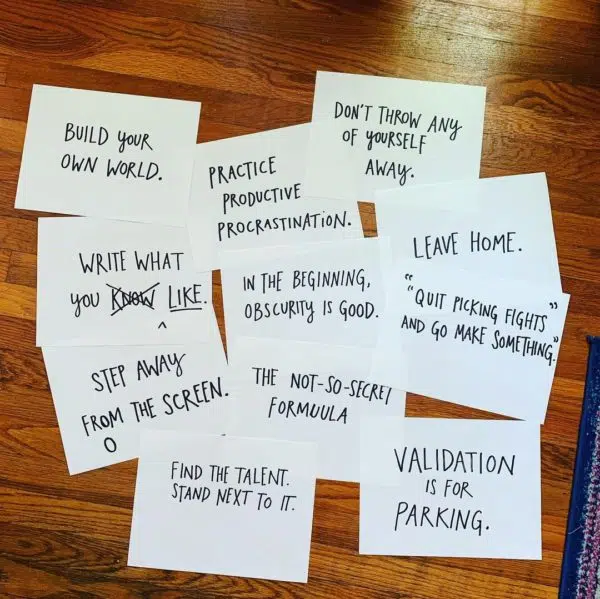 BUILD YOUR
OWN WORLD.
PRACTICE
PRODUCTIVE
PROCRASTINATION.
DON'T THROW ANY
OF YOURSELF
AWAY.
WRITE WHAT
YOU KNOW LIKE.
^
IN THE BEGINNING,
OBSCURITY IS GOOD.
LEAVE HOME.
"
"QUIT PICKING FIGHTS"
AND GO MAKE SOMETHING."
STEP AWAY
FROM THE SCREEN.
O
THE NOT-SO-SECRET
FORMUULA
FIND THE TALENT.
STAND NEXT TO IT.
VALIDATION
IS FOR
PARKING.